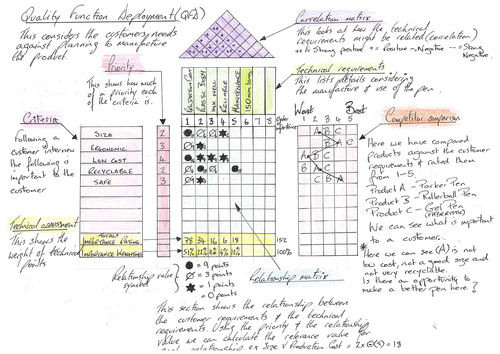 Quality Function Deployment (QFD)
This considers the customers needs
against planning to manufacture
the product.
Correlation matrix
This looks at how the technical
requirements might be related (correlation)
++ Strong positive + = Positive - = Negative -- = Strong
Negative.
Technical requirements
This lists details considering
the manufacture & use of the pen.
Priority
This shows how much
of a priority each
of the criteria is.
PLASTIC BODY
MAINTENANCE
150mm long
1 2 3 4 5 6 7 8
Criteria
Following a
customer interview
the following is
important to the
customer
SIZE 2
ERGONOMIC 3
LOW COST 4
RECYCLABLE 2
SAFE 3
Worst Best
1 2 3 4 5
Competitor comparison
Here we have compared
products against the customer
requirements & rated them
from 1-5.
Product A - Parker Pen
Product B - Rollerball Pen
Product C - Gel Pen
We can see what is important
to a customer...
* Here we can see (A) is not
low cost, not a good size and
not very recyclable.
Is there an opportunity to
make a better pen here?
Technical assessment
This shows the
weight of technical
points
IMPORTANCE RATING 78 34 16 6 18 152
100%
Relationship value
symbol
= 9 points
= 3 points
= 1 points
= 0 points
Relationship matrix
This section shows the relationship between
the customer requirements & the technical
requirements. Using the priority & the relationship
value we can calculate the relevance value for
relationship. eg Size V Production Cost = 2x(9) = 18